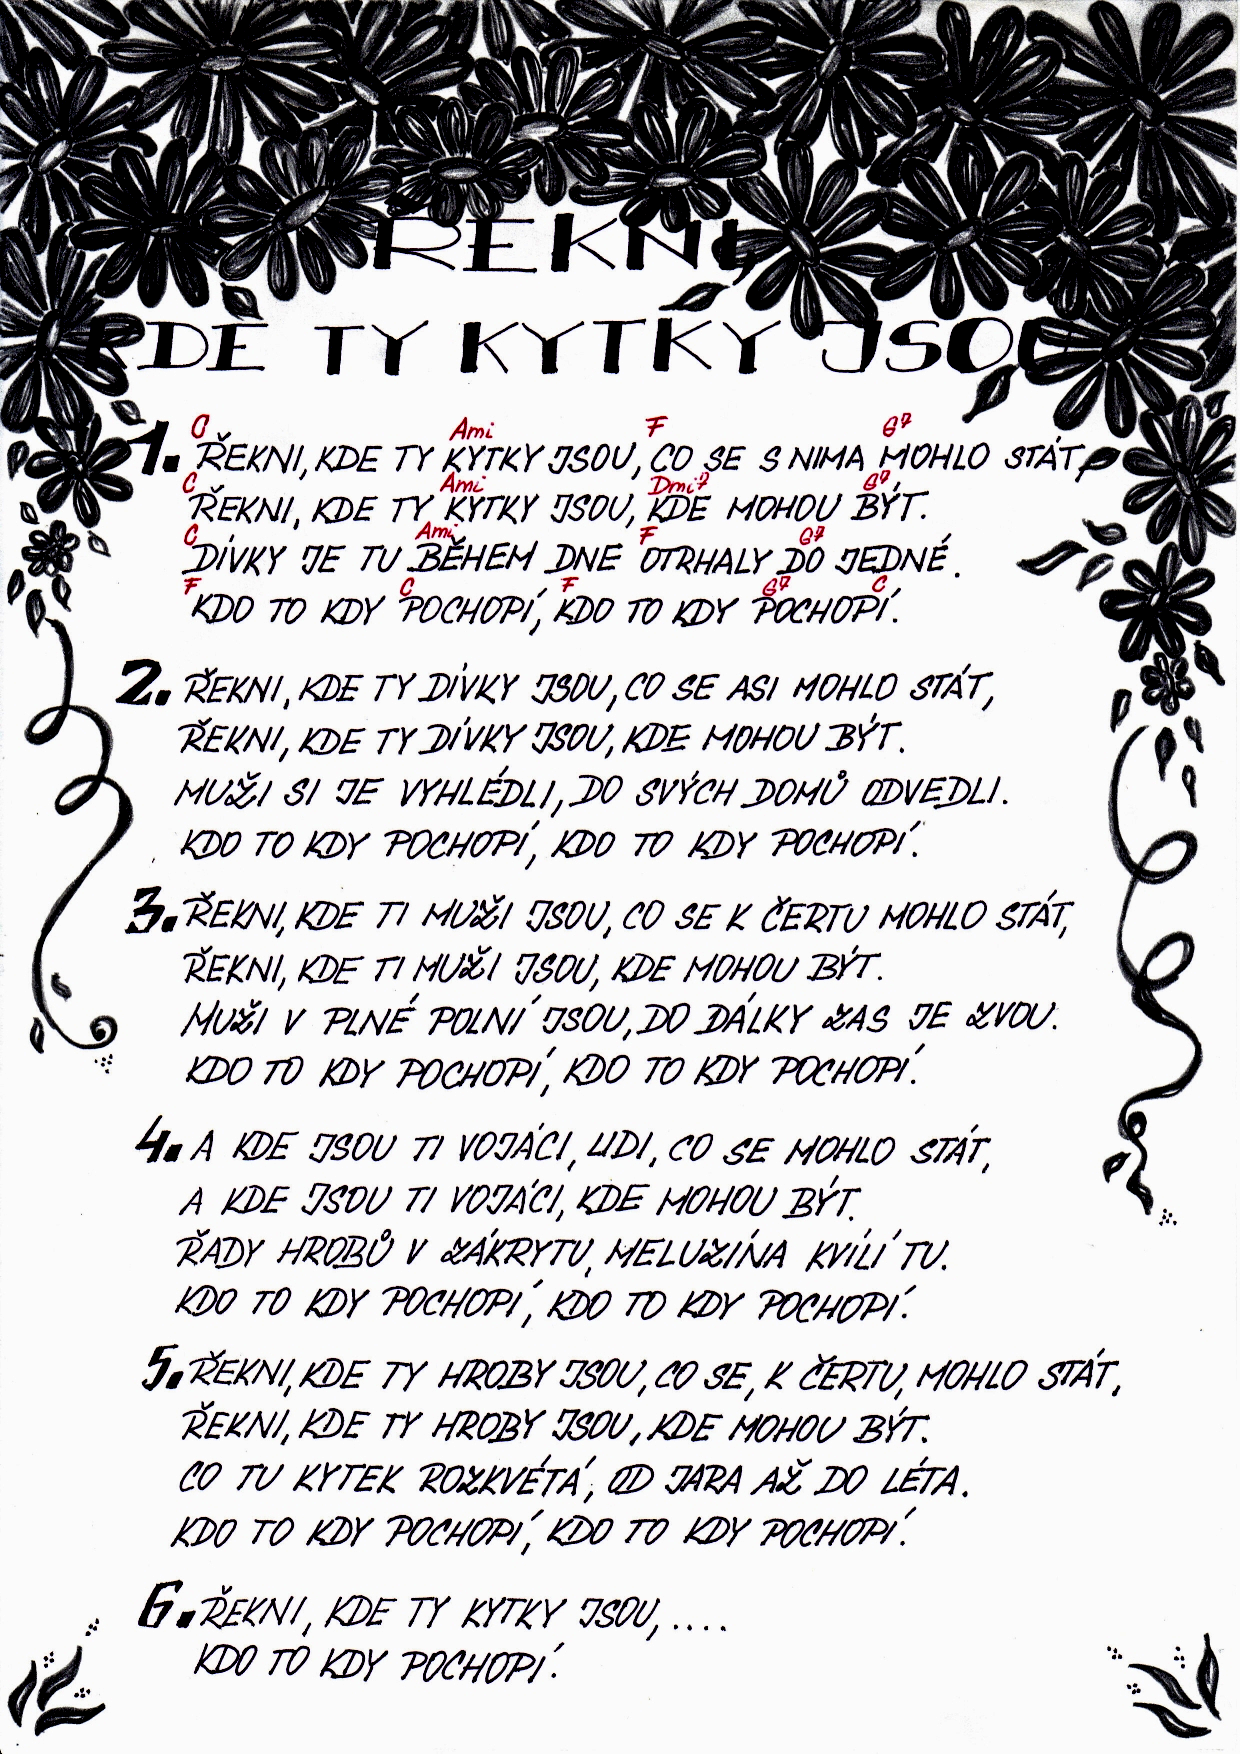 ŘEKNI,
KDE TY KYTKY JSOU
C Ami F G7
1. ŘEKNI, KDE TY KYTKY JSOU, CO SE S NIMA MOHLO STÁT,
C Ami Dmi7 G7
ŘEKNI, KDE TY KYTKY JSOU, KDE MOHOU BÝT.
C Ami F G7
DÍVKY JE TU BĚHEM DNE OTRHALY DO JEDNÉ.
F C F G7 C
KDO TO KDY POCHOPÍ, KDO TO KDY POCHOPÍ.
2. ŘEKNI, KDE TY DÍVKY JSOU, CO SE ASI MOHLO STÁT,
ŘEKNI, KDE TY DÍVKY JSOU, KDE MOHOU BÝT.
MUŽI SI JE VYHLÉDLI, DO SVÝCH DOMŮ ODVEDLI.
KDO TO KDY POCHOPÍ, KDO TO KDY POCHOPÍ.
3. ŘEKNI, KDE TI MUŽI JSOU, CO SE K ČERTU MOHLO STÁT,
ŘEKNI, KDE TI MUŽI JSOU, KDE MOHOU BÝT.
MUŽI V PLNÉ POLNÍ JSOU, DO DÁLKY ZAS JE ZVOU.
KDO TO KDY POCHOPÍ, KDO TO KDY POCHOPÍ.
4. A KDE JSOU TI VOJÁCI, LIDI, CO SE MOHLO STÁT,
A KDE JSOU TI VOJÁCI, KDE MOHOU BÝT.
ŘADY HROBŮ V ZÁKRYTU, MELUZÍNA KVÍLÍ TU.
KDO TO KDY POCHOPÍ, KDO TO KDY POCHOPÍ.
5. ŘEKNI, KDE TY HROBY JSOU, CO SE, K ČERTU, MOHLO STÁT,
ŘEKNI, KDE TY HROBY JSOU, KDE MOHOU BÝT.
CO TU KYTEK ROZKVÉTÁ, OD JARA AŽ DO LÉTA.
KDO TO KDY POCHOPÍ, KDO TO KDY POCHOPÍ.
6. ŘEKNI, KDE TY KYTKY JSOU, ....
KDO TO KDY POCHOPÍ.